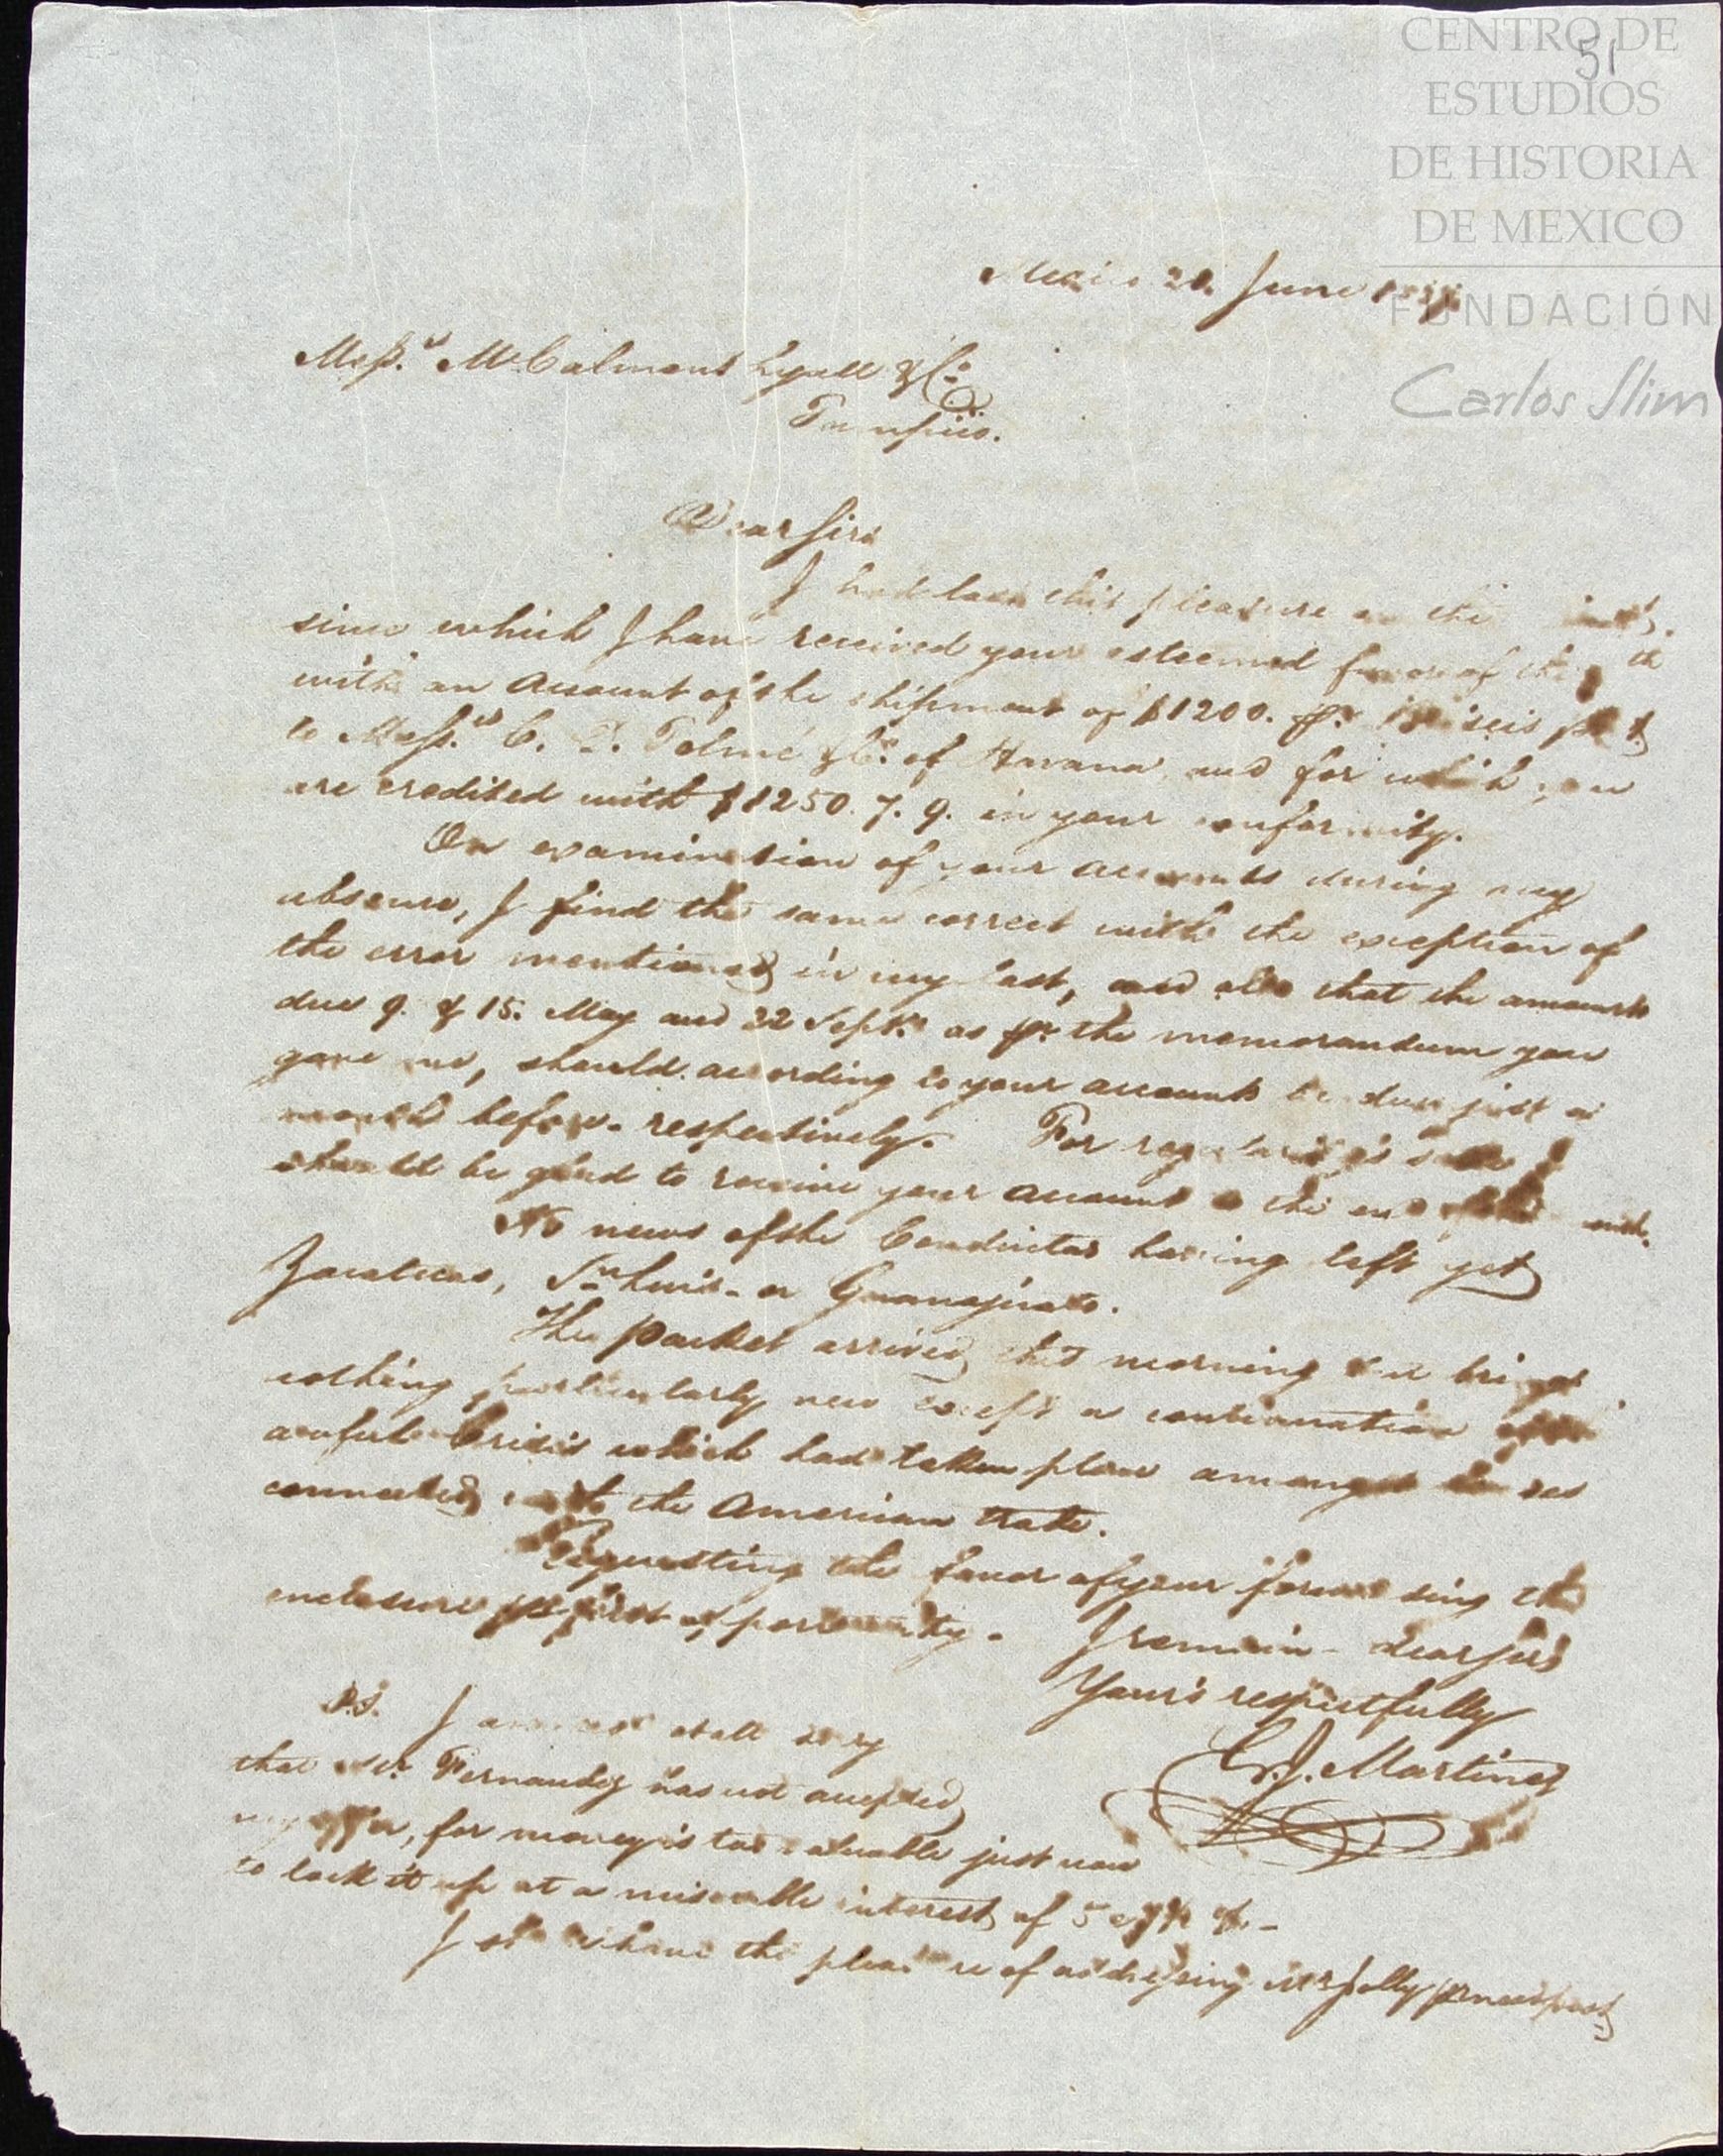 51
CENTRO DE
ESTUDIOS
DE HISTORIA
DE MEXICO
FUNDACIÓN
Carlos Slim
Mexico 21. June
Mess.rs McCalmont Lyall & Co.
Tampico.
Dear Sirs
I had last this pleasure on the inst.
since which I have received your esteemed favor of the th
with an account of the shipment of $1200. pr.
to Mess.rs C. D. Tolmé & Co. of Havana and for which you
are credited with $1250. 7. 9. in your conformity.
On examination of your accounts during my
absence, I find the same correct with the exception of
the error mentioned in my last, and also that the amounts
due 9. & 15. May and 22 Sept. as pr. the memorandum you
gave me, should according to your accounts be due just a
month before respectively. For regularity's sake I
should be glad to receive your account to the end
No news of the Conductas having left yet
Zacatecas, Sn Luis - or Guanajuato.
The packet arrived this morning but brings
nothing particularly new except a continuation of the
awful Crisis which had taken place amongst houses
connected with the American trade.
Requesting the favor of your forwarding the
enclosure pr. first opportunity. I remain - dear Sirs
Your's respectfully
C. J. Martinez
P.S. I am not at all sorry
that Mr. Fernandez has not accepted
my offer, for money is too valuable just now
to lock it up at a miserable interest of 5
I shall have the pleasure of addressing Mr Jolly pr next post